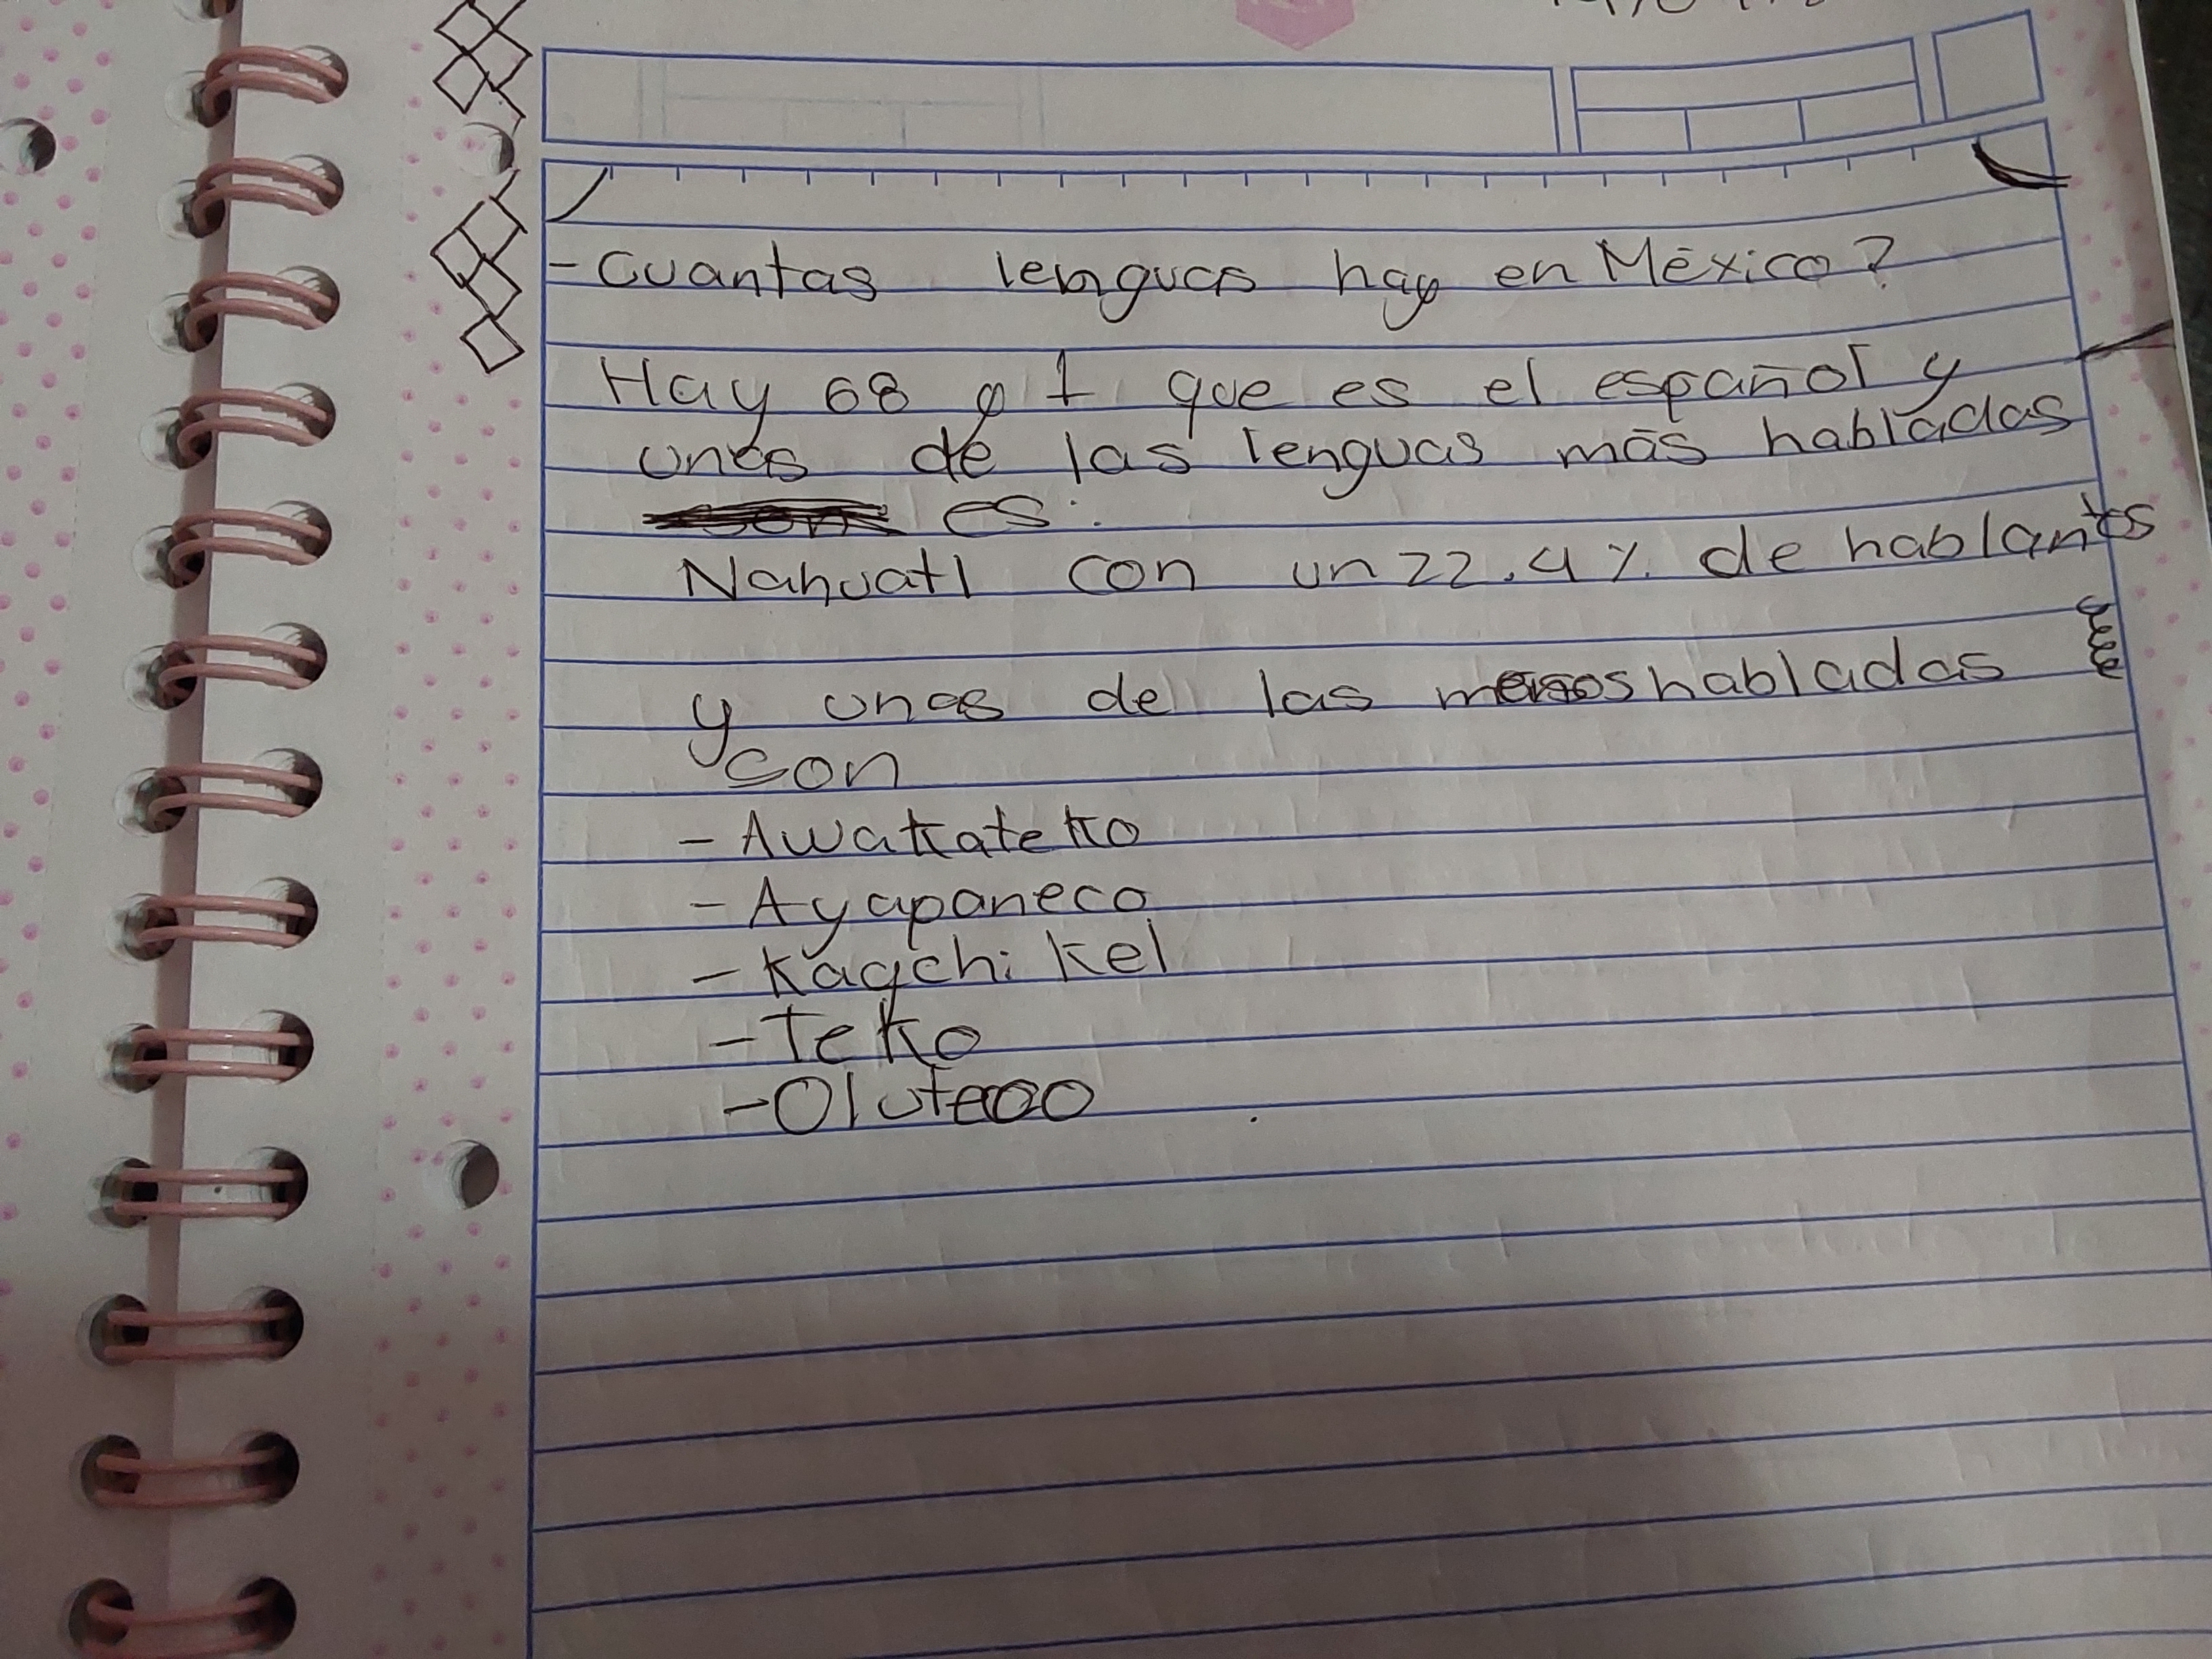 - Cuantas lenguas hay en México?
Hay 68 y 1 que es el español y
unas de las lenguas más habladas
es:
Nahuatl con un 22.4% de hablantes
y unas de las menos habladas
son
- Awakateko
- Ayapaneco
- Kaqchikel
- Teko
- Oluteco